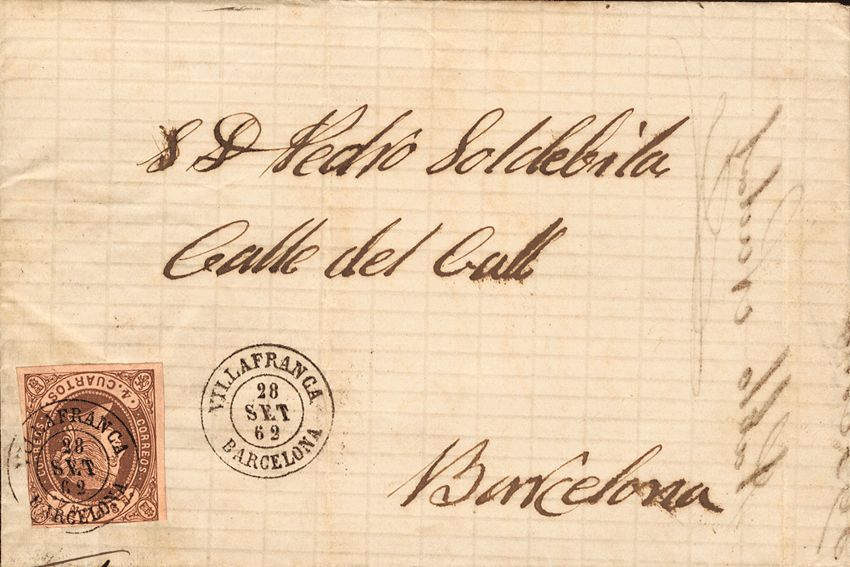 S D Pedro Soldebila
Calle del Call
Barcelona
VILLAFRANCA
28
SET
62
BARCELONA
4. CUARTOS
CORREOS
CORREOS
VILLAFRANCA
28
SET
62
BARCELONA